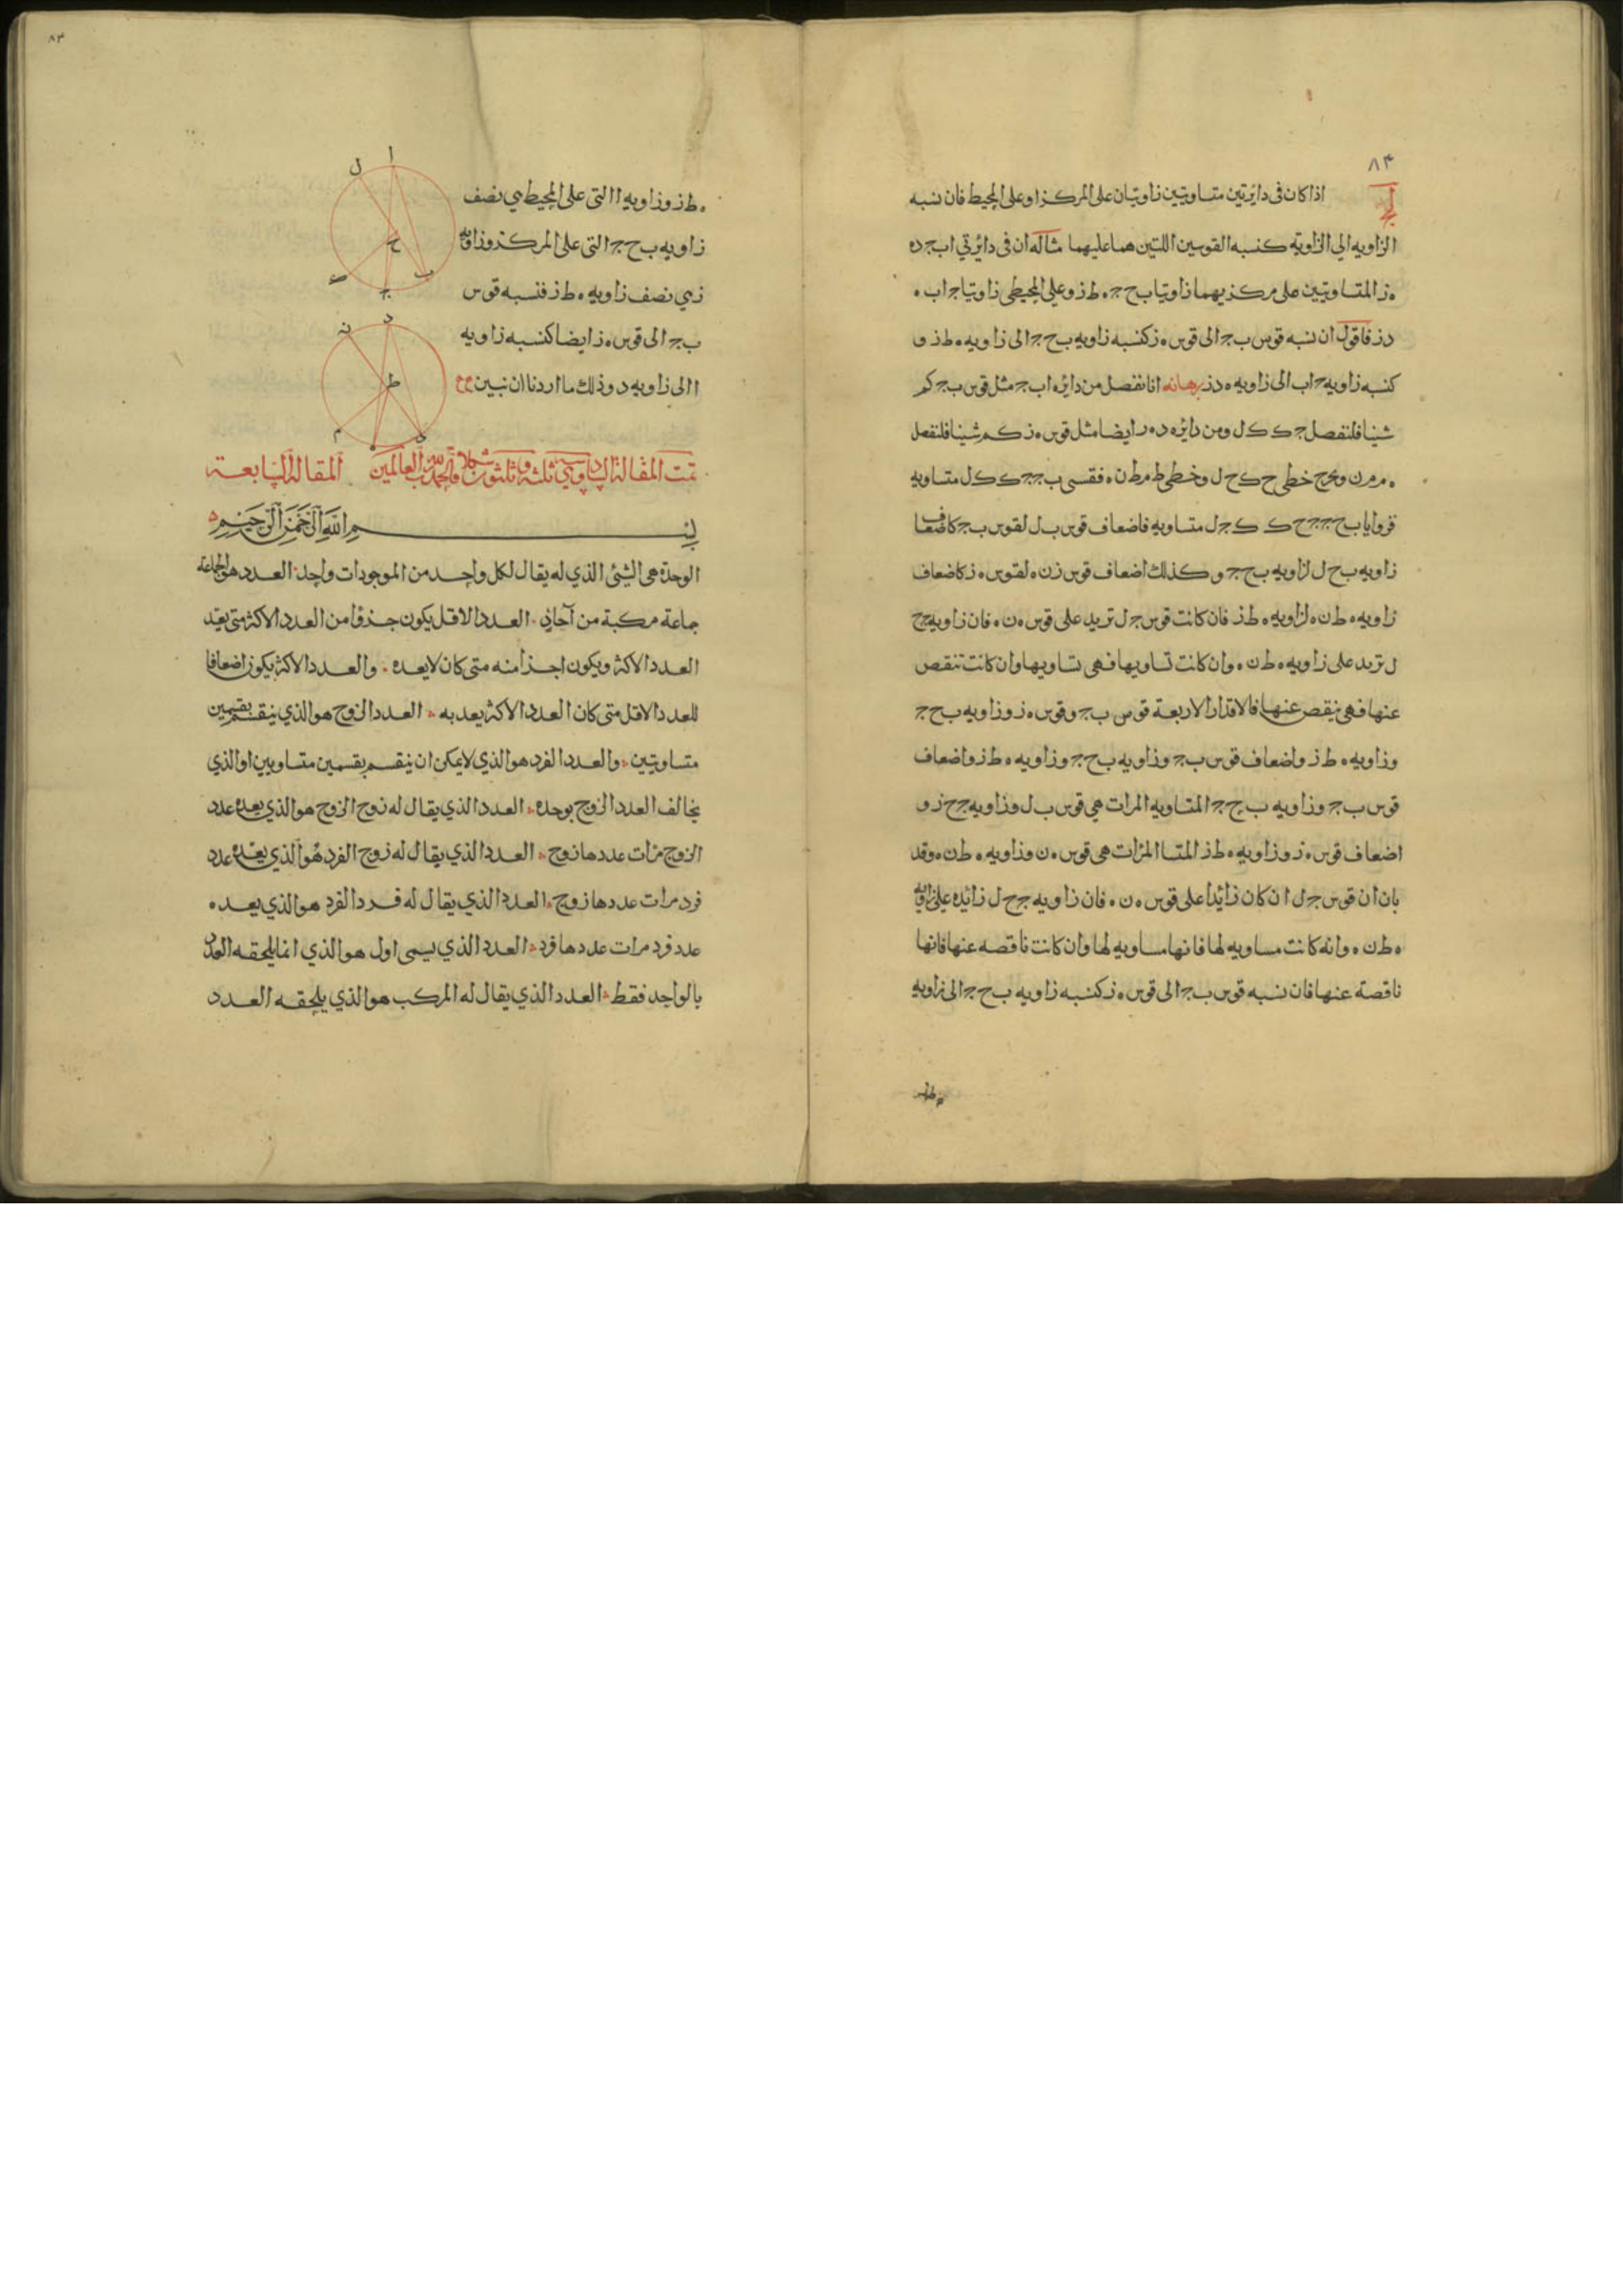 ٨٤
لج
اذا كان فى دايرتين متساويتين زاويتان على المركز او على المحيط فان نسبه
الزاويه الى الزاوية كنسبه القوسين اللتين هما عليهما مثاله ان فى دائرتي ا ب ج د ه
ه ز المتساويتين على مركزيهما زاويتا ب ح ج ه ط ز وعلى المحيطى زاويتا ج ا ب ه
د ز فاقول ان نسبه قوس ب ج الى قوس ه ز كنسبه زاويه ب ح ج الى زاويه ه ط ز و
كنسبه زاويه ج ا ب الى زاويه ه د ز برهانه انا نفصل من دائره ا ب ج مثل قوس ب ج كم
شينا فلنفصل ج ك ك ل ومن دائره د ه ر ايضا مثل قوس ه ز كم شينا فلنفصل
ه م م ن ونخرج خطى ح ك ح ل وخطى ط م ط ن ه فقسى ب ج ج ك ك ل متساويه
فزوايا ب ح ج ج ح ك ك ح ل متساويه فاضعاف قوس ب ل لقوس ب ج كاضعاف
زاويه ب ح ل لزاويه ب ح ج وكذلك اضعاف قوس ز ن ه لقوس ه ز كاضعاف
زاويه ه ط ن ه لزاويه ه ط ز فان كانت قوس ج ل تزيد على قوس ه ن ه فان زاويه ج ح
ل تزيد على زاويه ه ط ن ه وان كانت تساويها فهى تساويها وان كانت تنقص
عنها فهى ينقص عنها فالاقدار الاربعة قوس ب ج وقوس ه ز وزاويه ب ح ج
وزاويه ه ط ز واضعاف قوس ب ج وزاويه ب ح ج وزاويه ه ط ز واضعاف
قوس ب ج وزاويه ب ح ج المتساويه المرات هي قوس ب ل وزاويه ج ح ز و
اضعاف قوس ه ز وزاويه ه ط ز المتسا المرات هى قوس ه ن وزاويه ه ط ن ه وقد
بان ان قوس ج ل ان كان زائدا على قوس ه ن ه فان زاويه ج ح ل زائده على زاويه
ه ط ن ه وانه كانت مساويه لها فانها مساويه لها وان كانت ناقصه عنها فانها
ناقصة عنها فان نسبه قوس ب ج الى قوس ه ز كنسبه زاويه ب ح ج الى زاويه
ه ط ز
٨٣
ه ط ز وزاويه ا التى على المحيط هي نصف
زاويه ب ح ج التى على المركز وزاويه
ز هي نصف زاويه ه ط ز فنسبه قوس
ب ج الى قوس ه ز ايضا كنسبه زاويه
ا الى زاويه د وذلك ما اردنا ان نبين
ا
ل
ح
ب
ج
د
ن
ط
م
ه
تمت المقالة السادسة وهي ثلثة وثلثون شكلا والحمد لله رب العالمين المقالة السابعة
بسم الله الرحمن الرحيم
الوحدة هى الشئ الذي له يقال لكل واحد من الموجودات واحد العدد هو الجماعة
جماعة مركبة من آحاد العدد الاقل يكون جزؤا من العدد الاكثر متى يعد
العدد الاكثر ويكون اجزأ منه متى كان لا يعده والعدد الاكثر يكون اضعافا
للعدد الاقل متى كان العدد الاكثر يعد به العدد الزوج هو الذي ينقسم بقسمين
متساويين والعدد الفرد هو الذي لا يمكن ان ينقسم بقسمين متساويين او الذي
يخالف العدد الزوج بوحده العدد الذي يقال له زوج الزوج هو الذي يعده عدد
الزوج مرات عددها زوج العدد الذي يقال له زوج الفرد هو الذي يعده عدد
فرد مرات عددها زوج العدد الذي يقال له فرد الفرد هو الذي يعده
عدد فرد مرات عددها فرد العدد الذي يسمى اول هو الذي انما يلحقه العدد
بالواحد فقط العدد الذي يقال له المركب هو الذي يلحقه العدد